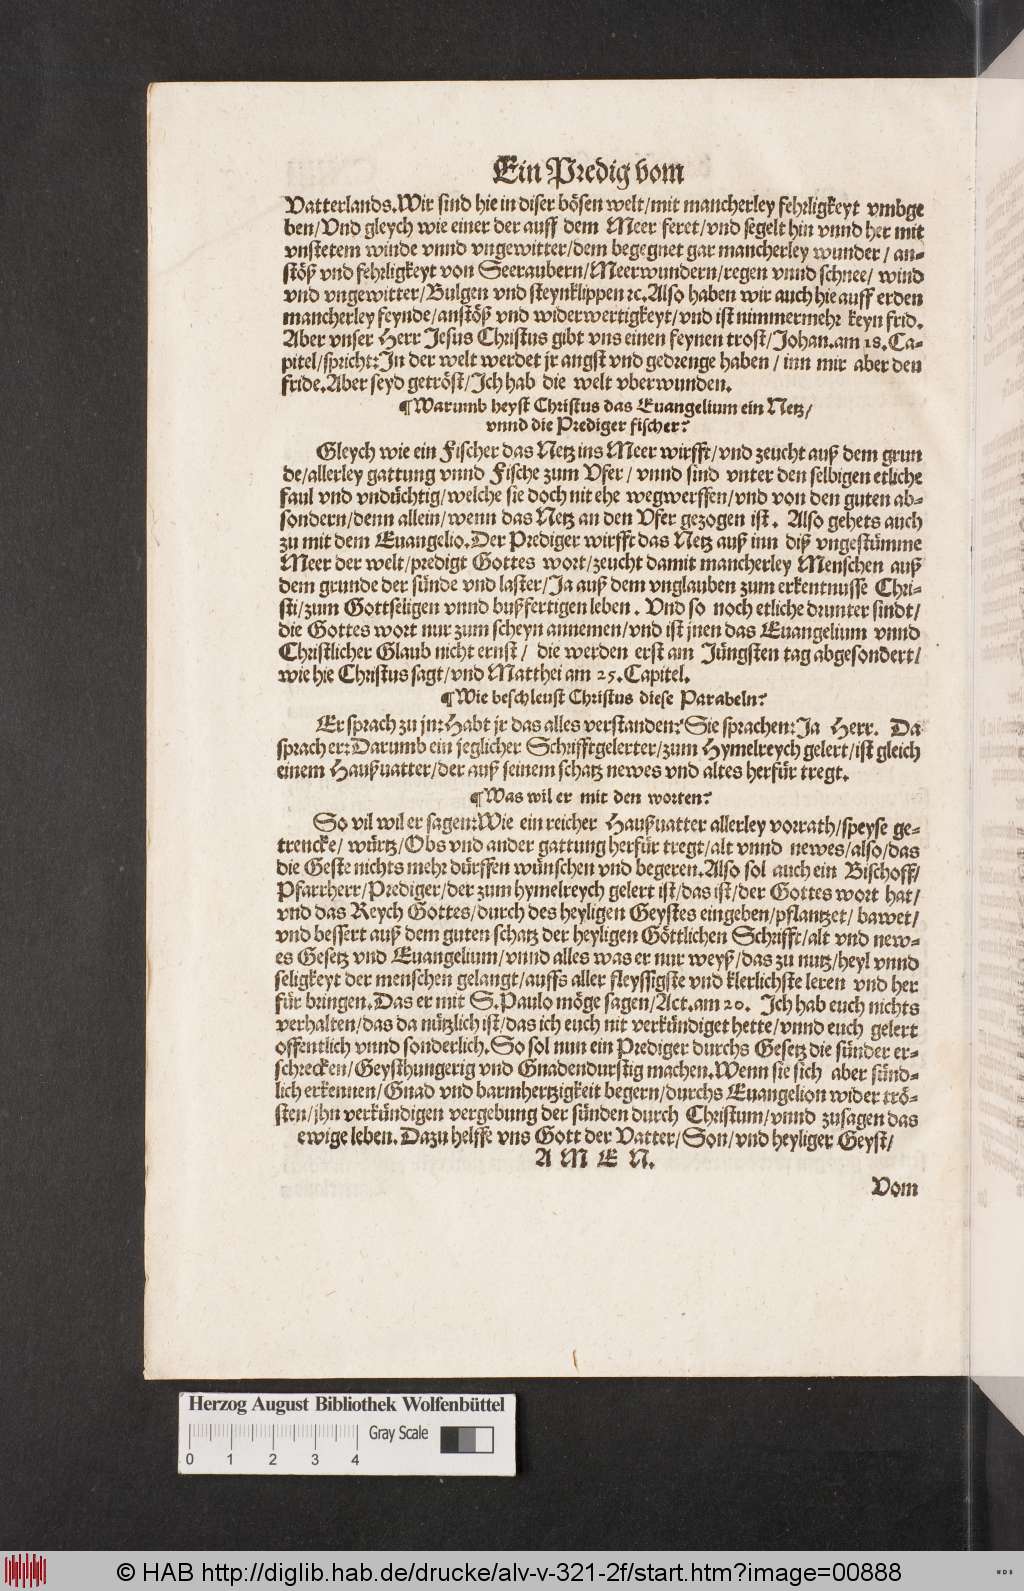 Ein Predig vom
Vatterlands. Wir sind hie in diser bösen welt/mit mancherley fehrligkeyt vmbge
ben/Vnd gleych wie einer der auff dem Meer feret/vnd segelt hin vnnd her mit
vnstetem winde vnnd vngewitter/dem begegnet gar mancherley wunder/ an-
stöß vnd fehrligkeyt von Seeraubern/Meerwundern/regen vnnd schnee/ wind
vnd vngewitter/Bulgen vnd steynklippen ꝛc. Also haben wir auch hie auff erden
mancherley feynde/anstöß vnd widerwertigkeyt/vnd ist nimmermehr keyn frid.
Aber vnser Herr Jesus Christus gibt vns einen feynen trost/Johan. am 18. Ca-
pitel/spricht: In der welt werdet jr angst vnd gedrenge haben/ inn mir aber den
fride. Aber seyd getröst/Ich hab die welt vberwunden.
¶ Warumb heyst Christus das Euangelium ein Netz/
vnnd die Prediger fischer?
Gleych wie ein Fischer das Netz ins Meer wirfft/vnd zeucht auß dem grun
de/allerley gattung vnnd Fische zum Vfer/ vnnd sind vnter den selbigen etliche
faul vnd vndüchtig/welche sie doch nit ehe wegwerffen/vnd von den guten ab-
sondern/denn allein/wenn das Netz an den Vfer gezogen ist. Also gehets auch
zu mit dem Euangelio. Der Prediger wirfft das Netz auß inn diß vngestümme
Meer der welt/predigt Gottes wort/zeucht damit mancherley Menschen auß
dem grunde der sünde vnd laster/Ja auß dem vnglauben zum erkentnusse Chri-
sti/zum Gottseligen vnnd bußfertigen leben. Vnd so noch etliche drunter sindt/
die Gottes wort nur zum scheyn annemen/vnd ist jnen das Euangelium vnnd
Christlicher Glaub nicht ernst/ die werden erst am Jüngsten tag abgesondert/
wie hie Christus sagt/vnd Matthei am 25. Capitel.
¶ Wie beschleust Christus diese Parabeln?
Er sprach zu jn: Habt jr das alles verstanden? Sie sprachen: Ja Herr. Da
sprach er: Darumb ein jeglicher Schrifftgelerter/zum Hymelreych gelert/ist gleich
einem Haußuatter/der auß seinem schatz newes vnd altes herfür tregt.
¶ Was wil er mit den worten?
So vil wil er sagen: Wie ein reicher Haußuatter allerley vorrath/speyse ge-
trencke/ würtz/Obs vnd ander gattung herfür tregt/alt vnnd newes/also/das
die Geste nichts mehr dürffen wünschen vnd begeren. Also sol auch ein Bischoff/
Pfarrherr/Prediger/der zum hymelreych gelert ist/das ist/der Gottes wort hat/
vnd das Reych Gottes/durch des heyligen Geystes eingeben/pflantzet/ bawet/
vnd bessert auß dem guten schatz der heyligen Göttlichen Schrifft/alt vnd new-
es Gesetz vnd Euangelium/vnnd alles was er nur weyß/das zu nutz/heyl vnnd
seligkeyt der menschen gelangt/auffs aller fleyssigste vnd klerlichste leren vnd her
für bringen. Das er mit S. Paulo möge sagen/Act. am 20. Ich hab euch nichts
verhalten/das da nützlich ist/das ich euch nit verkündiget hette/vnnd euch gelert
offentlich vnnd sonderlich. So sol nun ein Prediger durchs Gesetz die sünder er-
schrecken/Geysthungerig vnd Gnadendurstig machen. Wenn sie sich aber sünd-
lich erkennen/Gnad vnd barmhertzigkeit begern/durchs Euangelion wider trö-
sten/jhn verkündigen vergebung der sünden durch Christum/vnnd zusagen das
ewige leben. Dazu helffe vns Gott der Vatter/Son/vnd heyliger Geyst/
A M E N.
Vom
Herzog August Bibliothek Wolfenbüttel
Gray Scale
0 1 2 3 4
© HAB http://diglib.hab.de/drucke/alv-v-321-2f/start.htm?image=00888